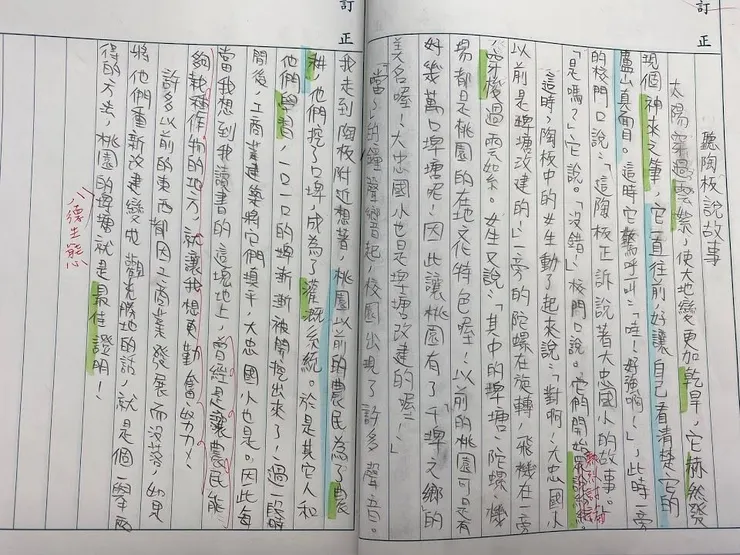 訂正
聽陶板說故事
太陽穿過雲縫，使大地變更加乾旱，它赫然發
現個神來之筆，它直往前，好讓自己看清楚它的
廬山真面目。這時它驚呼叫：「哇！好強啊！」，此時一旁
的校門口說：「這陶板正訴說著大忠國小的故事。」
「是嗎？」它說。「沒錯！」校門口說。它們開始
這時，陶板中的女生動了起來說：「對啊！大忠國小
以前是埤塘改建的！」一旁的陀螺在旋轉，飛機在一旁
穿梭過雲如絮。女生又說：「其中的埤塘、陀螺、機
場都是桃園的在地文化特色喔！以前的桃園可是有
好幾萬口埤塘呢！因此讓桃園有了千埤之鄉」的
美名喔！大忠國小也是埤塘改建的喔！」
「噹」的鐘聲響起，校園出現了許多聲音。
訂正
我走到陶板附近想著，桃園以前的農民為了農
耕，他們挖了口埤，成為了灌溉系統。於是其它人和
他們學習，一口一口的埤漸漸被開挖出來了！過一段時
間後，工商業建築將它們填平，大忠國小也是。因此每
當我想到我讀書的這塊地上，曾經是讓農民能
夠栽種作物的地方，就讓我想更勤奮努力！
許多以前的東西都因工商業發展而沒落，如果
將他們重新改建變成觀光勝地的話，就是個一舉兩
得的方法，桃園的埤塘就是最佳證明！